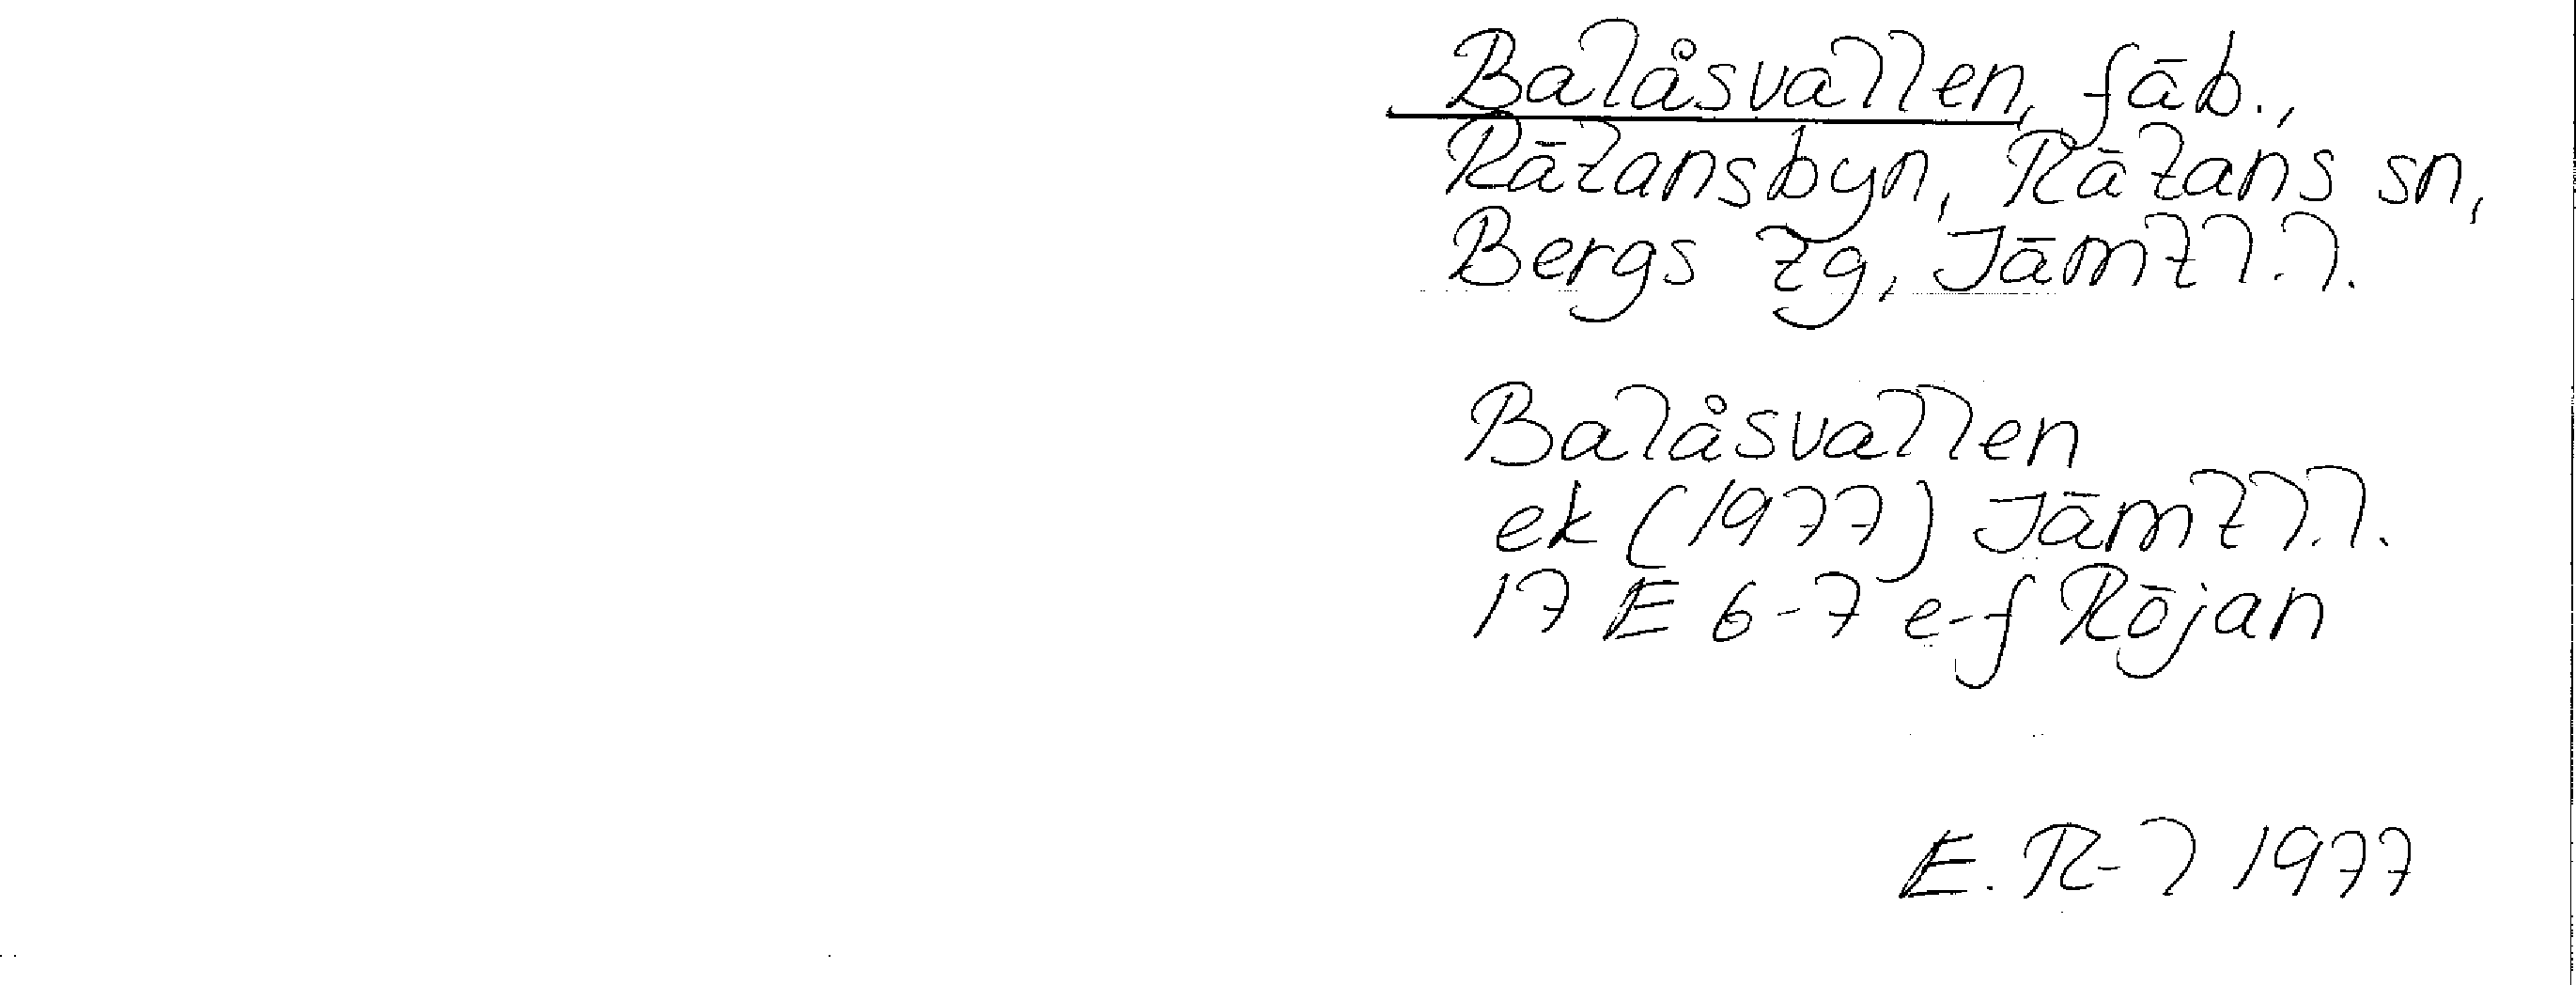 Balåsvallen, fäb.,
Rätansbyn, Rätans sn,
Bergs tg, Jämtl.l.
Balåsvallen
ek (1977) Jämtl.l.
17 E 6-7 e-f Röjan
E. R-l 1977